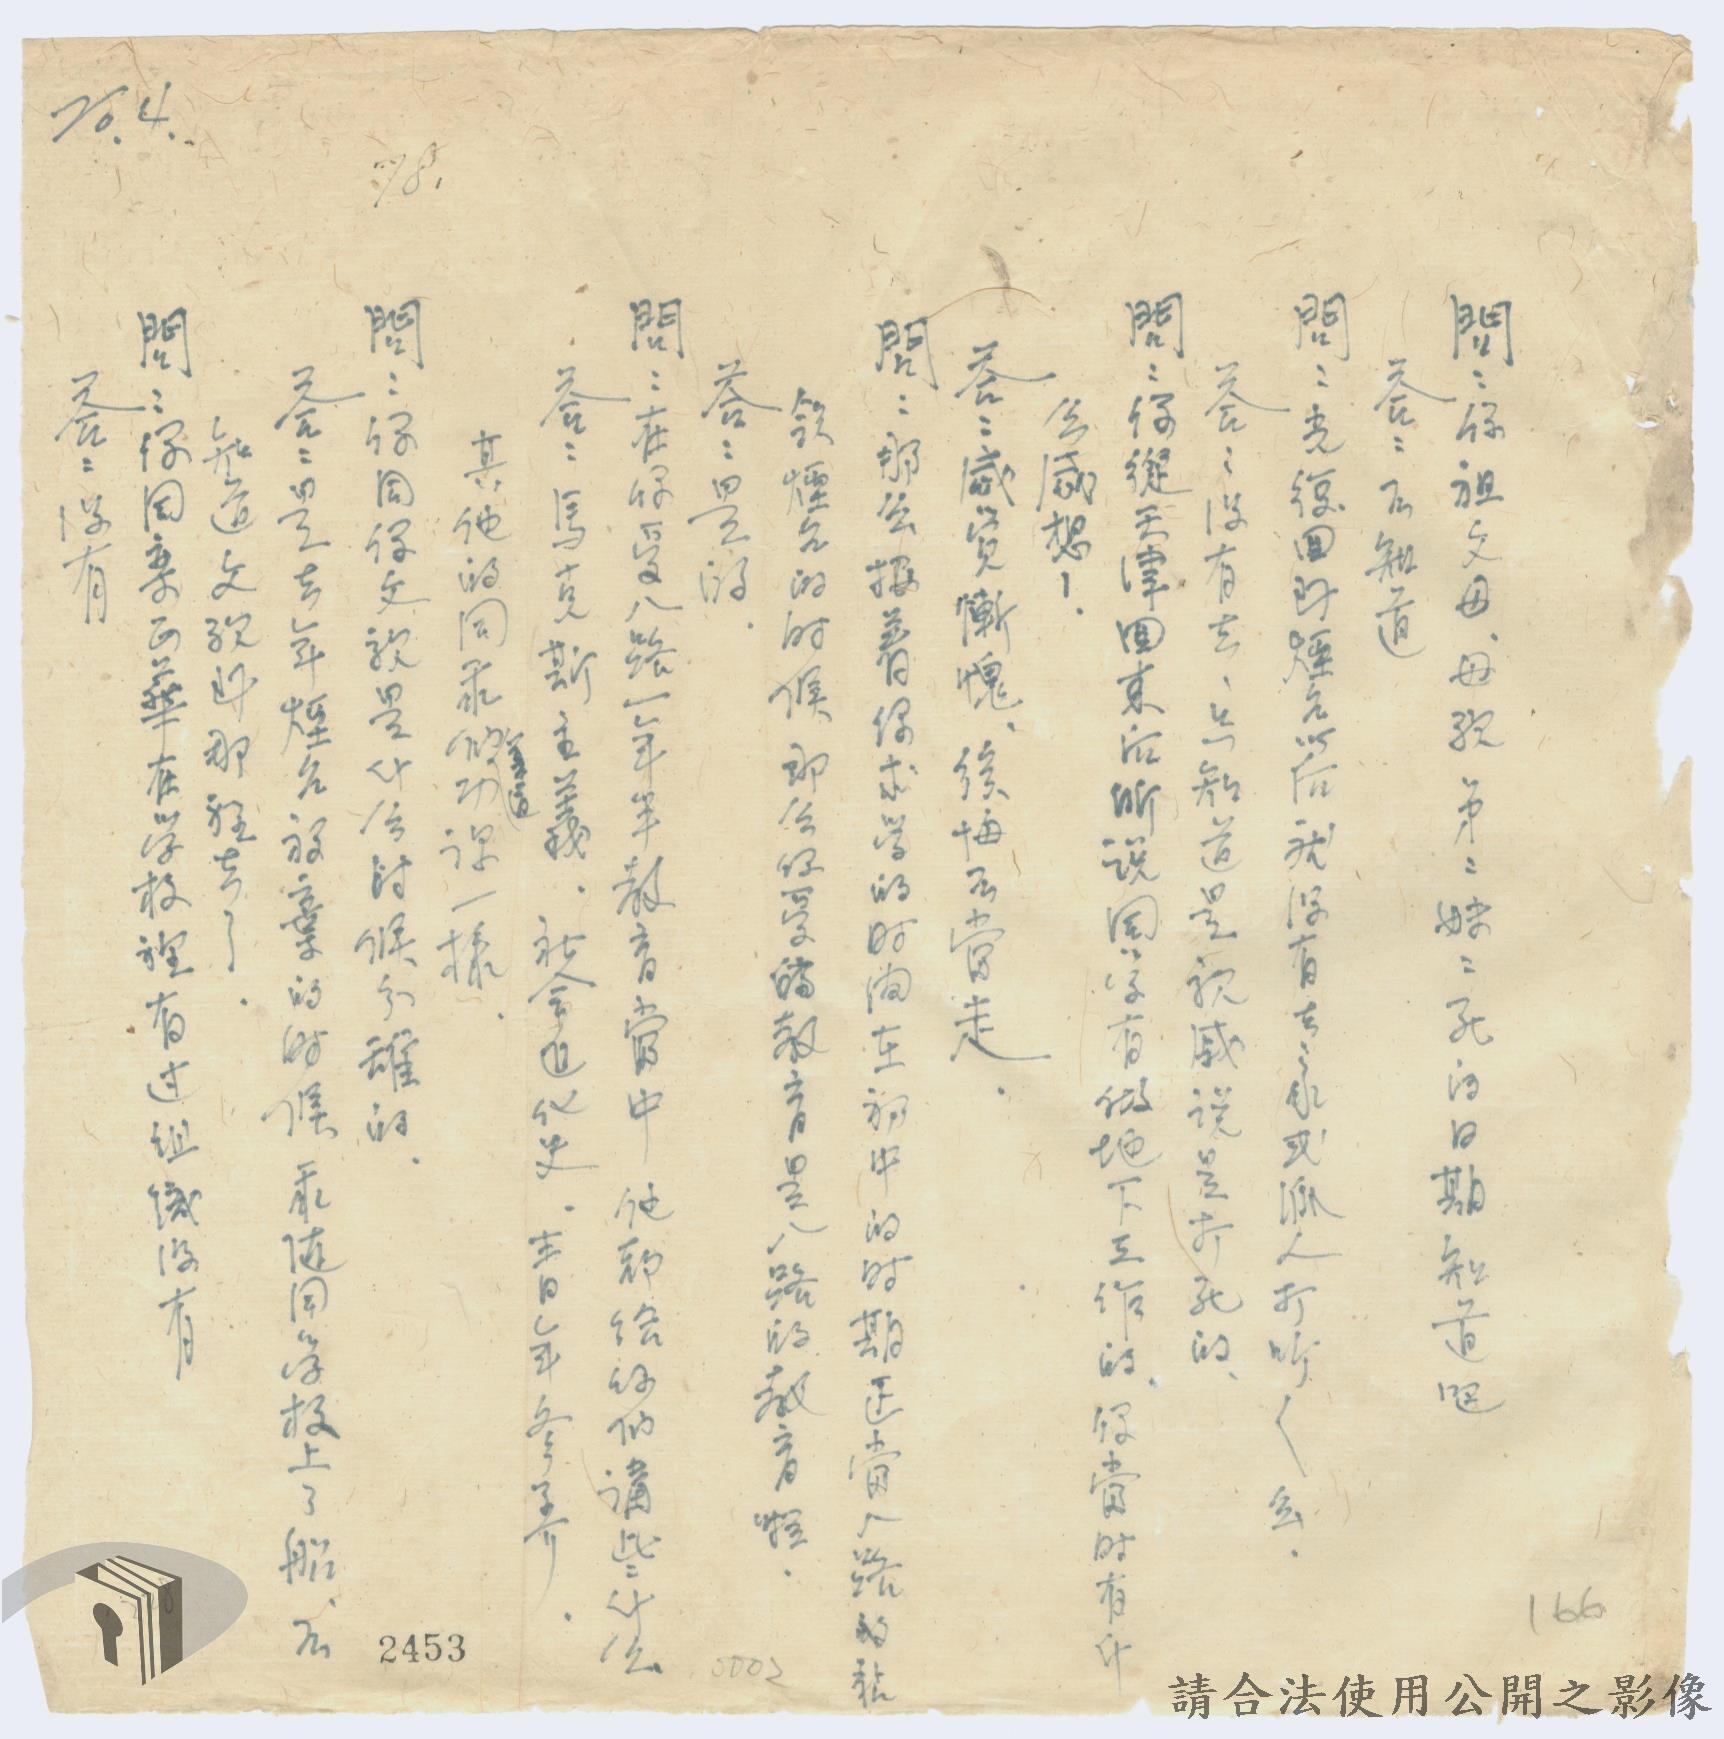 70.4.
78.
問：你祖父母、母親第二妹二死的日期知道吧
答：不知道
問：克復回到煙台以后就沒有去家或派人打听〱么．
答：沒有去，只知道是親戚說是打死的、
問：你從天津回來后听說同学有做地下工作的、你當时有什
么感想！
答：感覺慚愧、後悔不當走．
問：那么接着你求学的时间在初中的时期正當八路的
煙台的时候那么你受的教育是八路的教育囉．
答：是的．
問：在你受八路一年半教育當中他都給你们講些什么
答：馬克斯主義．社会進化史．
其他的同功課一樣．
問：你同你父親是什么时候分離的．
答：是去年煙台放棄的时候乘随同学校上了船、不
知道父親到那裡去了．
問：你同在学校裡有过組織沒有
答：沒有
2453
0002
166
請合法使用公開之影像